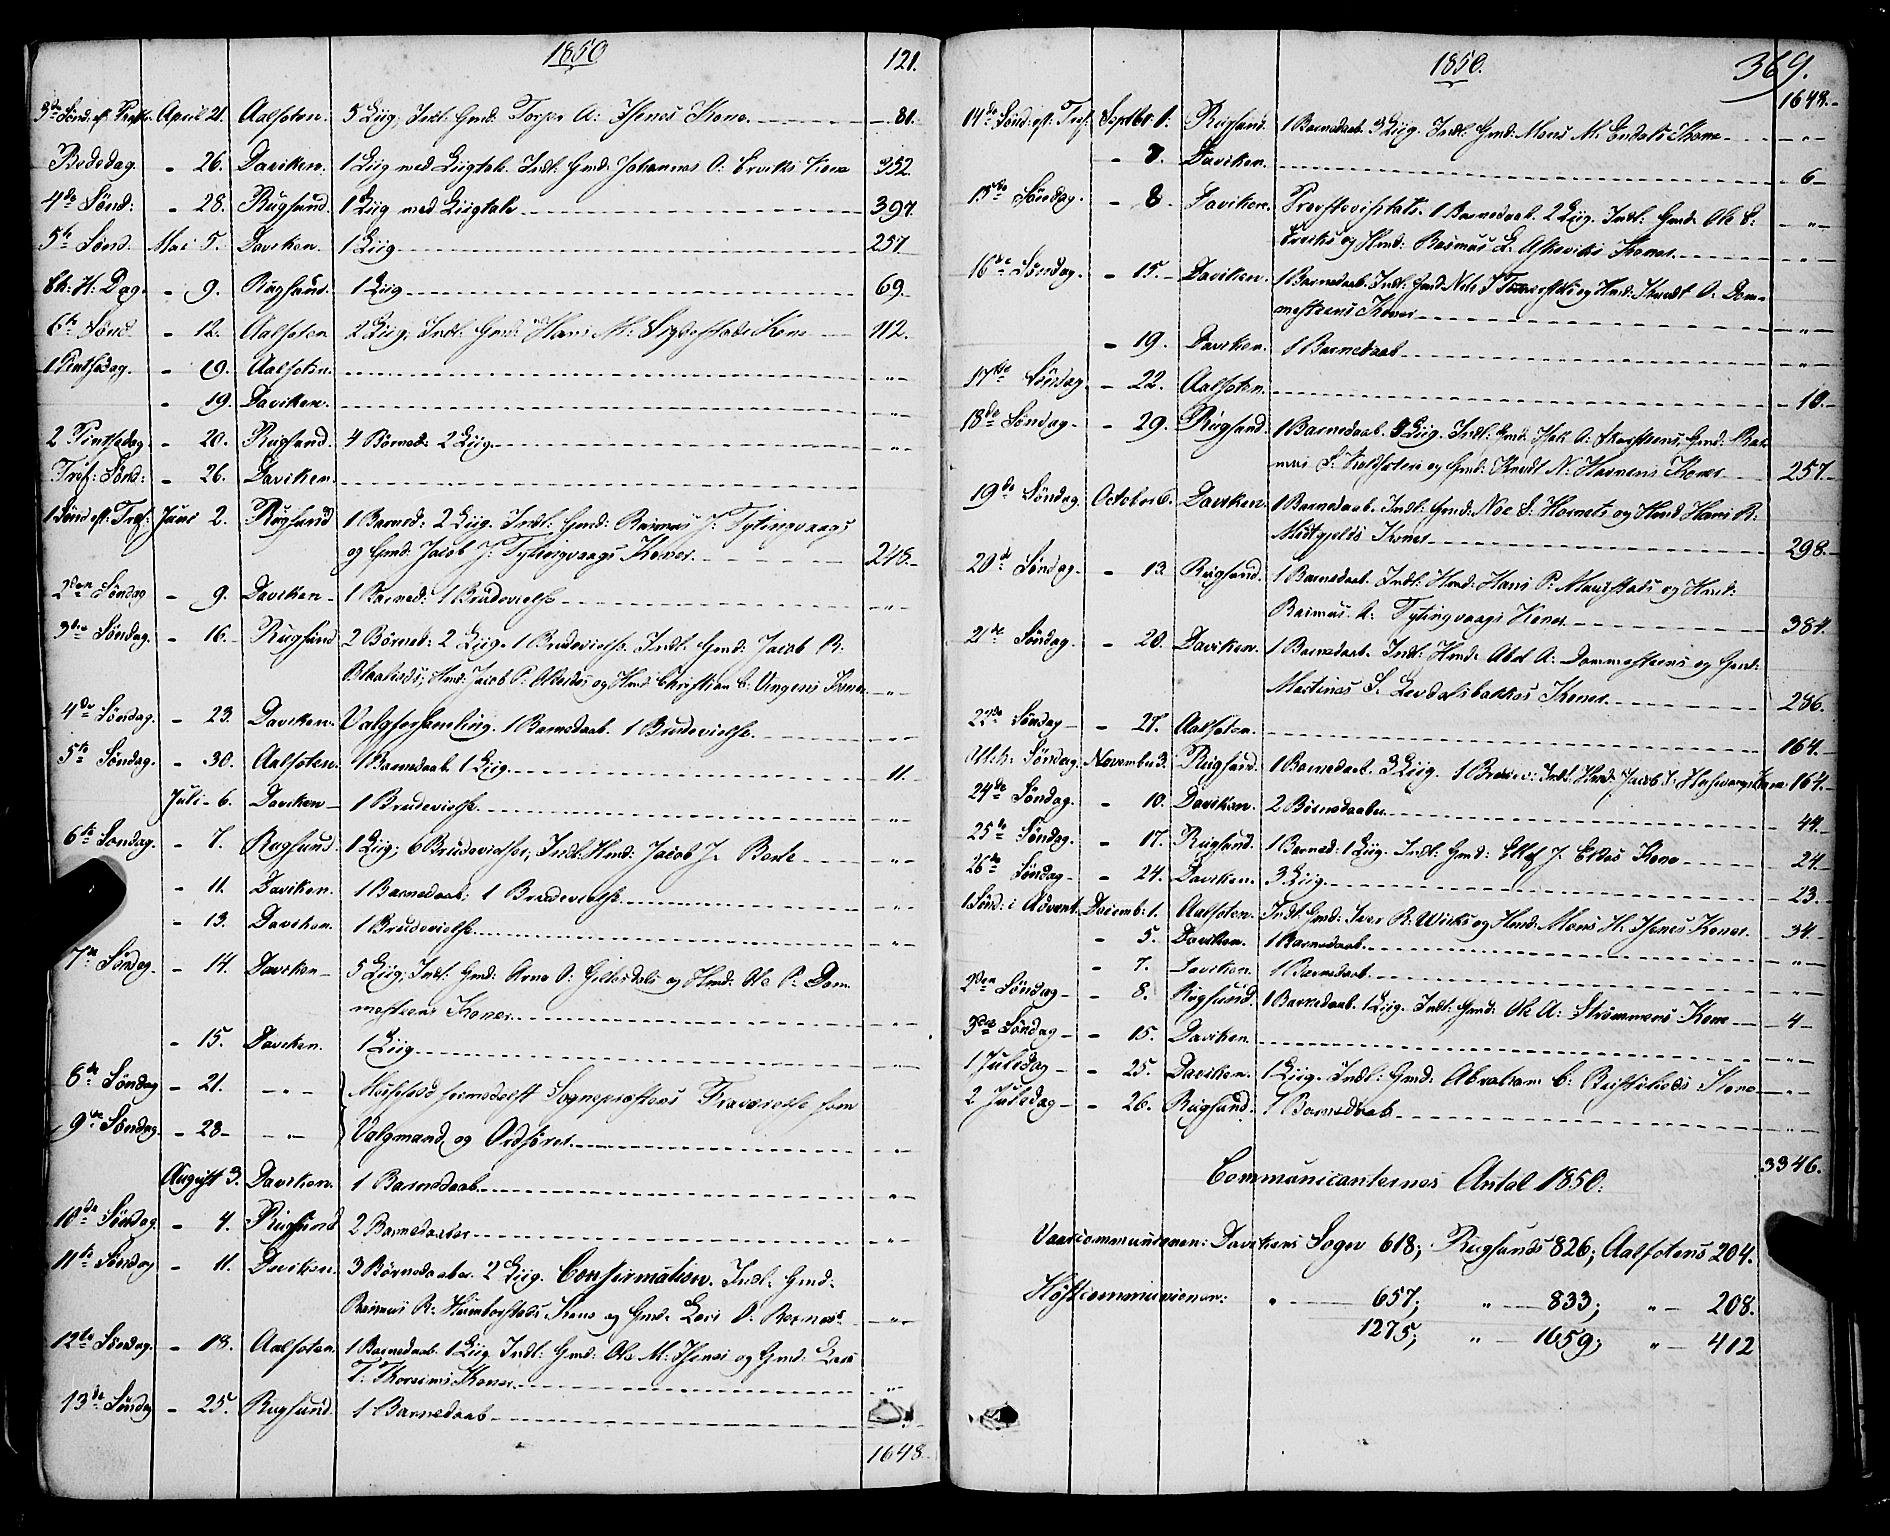 1850
121.
3de Sønd. ef. Paask. April 21. Aalfoten. 5 Liig, Indl: Gmd: A: Isenes Kone 81.
Bededag. " 26. Daviken. 1 Liig med Liigtale. Indl: Gmd: Johannes O: Erviks Kone 352.
4de Sønd: " 28. Rugsund. 1 Liig med Liigtale 397.
5te Sønd. Mai 5. Daviken. 1 Liig 257
Ch: H: Dag. " 9. Rugsund. 1 Liig 69
6te Sønd. " 12. Aalfoten 2 Liig, Indl: Gmd: Hans M: Kone 112.
1 Pintsedag. " 19. Aalfoten. "
" 19. Daviken. "
2 Pintsedag. " 20. Rugsund. 4 Børned: 2 Liig. "
Tref: Sønd: " 26. Daviken. "
1 Sønd eft: Tref: Juni 2. Rugsund 1 Barned: 2 Liig. Indl: Gmd: Rasmus J: Tytingvaags
og Gmd: Jacob J: Tytingvaags Koner. 248.
2den Søndag " 9. Daviken 1 Barned: 1 Brudevielse "
3die Søndag. " 16. Rugsund 2 Børned: 2 Liig. 1 Brudevielse. Indl: Gmd: Jacob R:
Hmd: Jacob P: og Hmd Christian C: Koner "
4de Søndag. " 23. Daviken. Valgforsamling. 1 Barnedaab. 1 Brudevielse. "
5te Søndag. " 30. Aalfoten. 1 Barnedaab. 1 Liig 11.
Juli 6. Daviken 1 Brudevielse "
6te Søndag. " 7. Rugsund. 1 Liig; 6 Brudevielser, Indl: Hmd: Jacob J: Berle "
" 11. Daviken. 1 Barnedaab; 1 Brudevielse "
" 13. Daviken. 1 Brudevielse "
7de Søndag. " 14. Daviken 5 Liig; Indl: Gmd: Arne O: og Hmd: Ole P: Dom-
mesteens Koner. "
" 15. Daviken. 1 Liig "
8de Søndag " 21. " Messefald formedelst Sognepræstens Fraværelse som
9de Søndag. " 28 " Valgmand og Ordfører. "
August 3. Daviken. 1 Barnedaab. "
10de Søndag. " 4. Rugsund 2 Barnedaaber "
11te Søndag " 11. Daviken. 3 Børnedaaber. 2 Liig. Confirmation. Indl: Gmd:
Rasmus R: Kone og Gmd: Lars O: "
12te Søndag. " 18. Aalfoten. 1 Barnedaab. 1 Liig Indl: Gmd: Ole M: Isenes og Gmd: Lars
T: Koner "
13de Søndag " 25. Rugsund. 1 Barnedaab
1648.
1850.
369.
1648.
14de Sønd: eft: Tref: Septbr 1. Rugsund. 1 Barnedaab. 3 Liig. Indl: Gmd: Mons M: Endals Kone "
" 7. Daviken. 6
15de Søndag. " 8. Daviken. Provstevisitats. 1 Barnedaab. 2 Liig. Indl: Gmd: Ole E: "
Erviks og Hmd: Rasmus L: Koner. "
16de Søndag. " 15. Daviken. 1 Barnedaab. Indl: Gmd Nils og Hmd: Knudt O: Dom-
mesteens Koner "
" 19. Daviken. 1 Barnedaab "
17de Søndag. " 22. Aalfoten. 10
18de Søndag. " 29. Rugsund. 1 Barnedaab. 5 Liig. Indl: Gmd: Isak A: Gmd: Ras-
mus S: og Gmd: Knudt N: Koner 257.
19de Søndag. October 6. Daviken. 1 Barnedaab. Indl: Gmd: Noe S: Hornets og Hmd Hans R:
Koner 298.
20de Søndag. " 13. Rugsund. 1 Barnedaab. Indl: Hmd: Hans P: og Hmd:
Rasmus A: Tytingvaags Koner. 384.
21de Søndag. " 20. Daviken. 1 Barnedaab. Indl: Hmd: Abel A: Dommesteens og Gmd:
Martinus S: Levdalsbakkes Koner. 286.
22de Søndag " 27. Aalfoten. 164.
Søndag November 3. Rugsund. 1 Barnedaab. 3 Liig. 1 Brudev: Indl: Hmd: Jacob J: Kone 164.
24de Søndag. " 10. Daviken. 2 Børnedaaber. 44.
25de Søndag. " 17. Rugsund. 1 Barned: 1 Liig. Indl: Gmd: J: Kone 24
26de Søndag " 24. Daviken. 3 Liig. 23.
1 Sønd: i Advent. Decemb: 1. Aalfoten. Indl: Gmd: Iver R: og Hmd: Mons H: Isenes Koner. 34.
" 5. Daviken. 1 Barnedaab. "
" 7. Daviken. 1 Barnedaab. "
2den Søndag " 8. Rugsund. 1 Barnedaab. 1 Liig. Indl: Gmd: Ole A: Strømmens Kone 4
3die Søndag " 15. Daviken. "
1 Juledag " 25. Daviken. 1 Liig. Indl: Gmd: Abraham C: Kone "
2 Juledag " 26. Rugsund. 1 Barnedaab. "
3346.
Communicanternes Antal 1850:
Vaarcommunionen: Davikens Sogn 618; Rugsunds 826; Aalfotens 204.
Høstcommunionen: " 657; " 833; " 208.
1275; " 1659; " 412